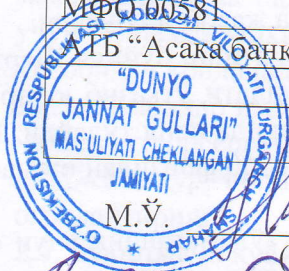 МФО 00581
АТБ “Асака банк
O‘ZBEKISTON RESPUBLIKASI XORAZM VILOYATI URGANCH SHAHAR
"DUNYO
JANNAT GULLARI"
MAS'ULIYATI CHEKLANGAN
JAMIYATI
М.Ў.